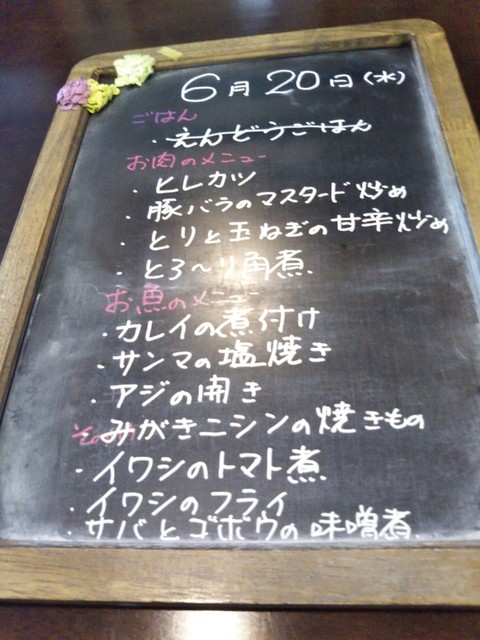 6月20日(水)
ごはん
・えんどうごはん
お肉のメニュー
・ヒレカツ
・豚バラのマスタード炒め
・とりと玉ねぎの甘辛炒め
・とろ〜り角煮
お魚のメニュー
・カレイの煮付け
・サンマの塩焼き
・アジの開き
・みがきニシンの焼きもの
・イワシのトマト煮
・イワシのフライ
・サバとゴボウの味噌煮